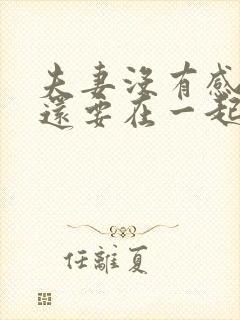 夫妻沒有感
還要在一起
任離夏